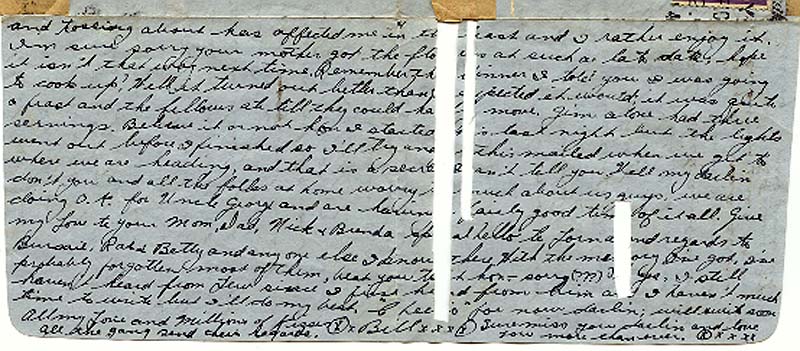 and tossing about has affected me in the least and I rather enjoy it.
I'm sure sorry your mother got the flo as at such a late date, hope
it isn't that way next time. Remember th inner I told you I was going
to cook up? Well it turned out better than pected it would; it was quite
a feast and the fellows ate till they could ha move. Jim alone had three
servings. Believe it or not hon I started is last night but the lights
went out before I finished so I'll try and this mailed when we get to
where we are heading, and that is a secre an't tell you. Well my darlin
don't you and all the folks at home worry much about us guys, we are
doing O.K. for Uncle Georg and are havin fairly good time of it all. Give
my love to your Mom, Dad, Nick & Brenda hello to Lorna nd regards to
Betty and any one else I know there. With the memory I've got, I've
probably forgotten most of them, beat you to it hon- sorry (??)? Yes, I still
haven't heard from since I heard from him I haven't much
time to write but I'll do my best. for now darlin; will write soon
All my love and Millions of Kisses (x) x Bill x x x (x) Sure miss you darlin and love
all the gang send their regards. you more than ever. (x) x x x